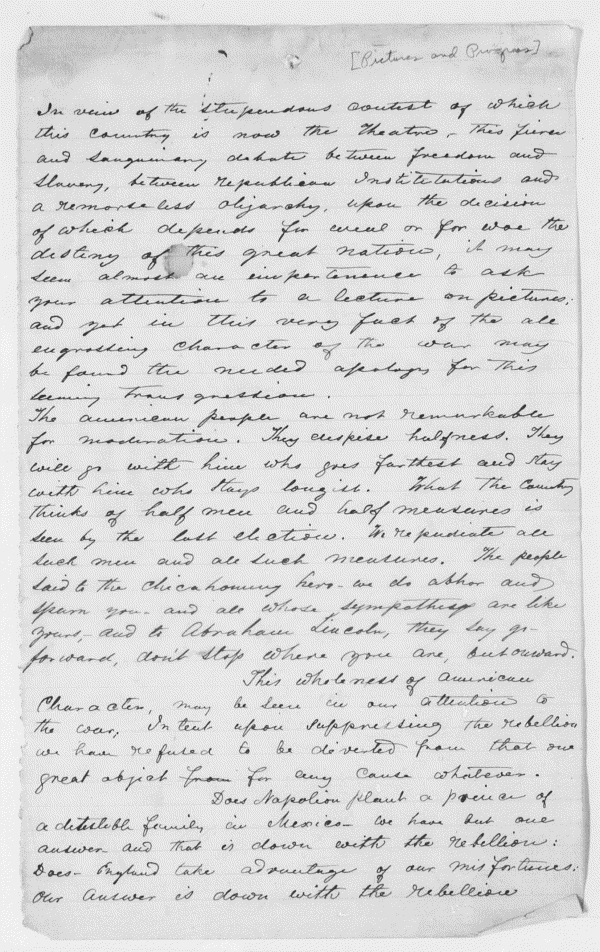 [Pictures and Progress]
In view of the stupendous contest of which
this country is now the Theatre, this fierce
and sanguinary debate between freedom and
Slavery, between republican Institutions and
a remorseless oligarchy, upon the decision
of which depends for weal or for woe the
destiny of this great nation, it may
seem almost an impertenence to ask
your attention to a lecture on pictures;
and yet in this very fact of the all
engrossing character of the war may
be found the needed apology for this
seeming transgression.
The american people are not remarkable
for moderation. They despise halfness. They
will go with him who goes farthest and stay
with him who stays longist. What the Country
thinks of half men and half measures is
seen by the last election. We repudiate all
such men and all such measures. The people
said to the Chicahominy hero - we do abhor and
spurn you - and all whose sympathies are like
yours, - and to Abraham Lincoln, they say go
forward, don't stop where you are, but onward.
This wholeness of american
Character, may be seen in our attention to
the war; Intent upon suppressing the rebellion
we have refused to be diverted from that one
great object from for any cause whatever.
Does Napolion plant a prince of
a detestible family in Mexico - we have but one
answer and that is down with the rebellion:
Does - England take advantage of our misfortunes:
our answer is down with the rebellion